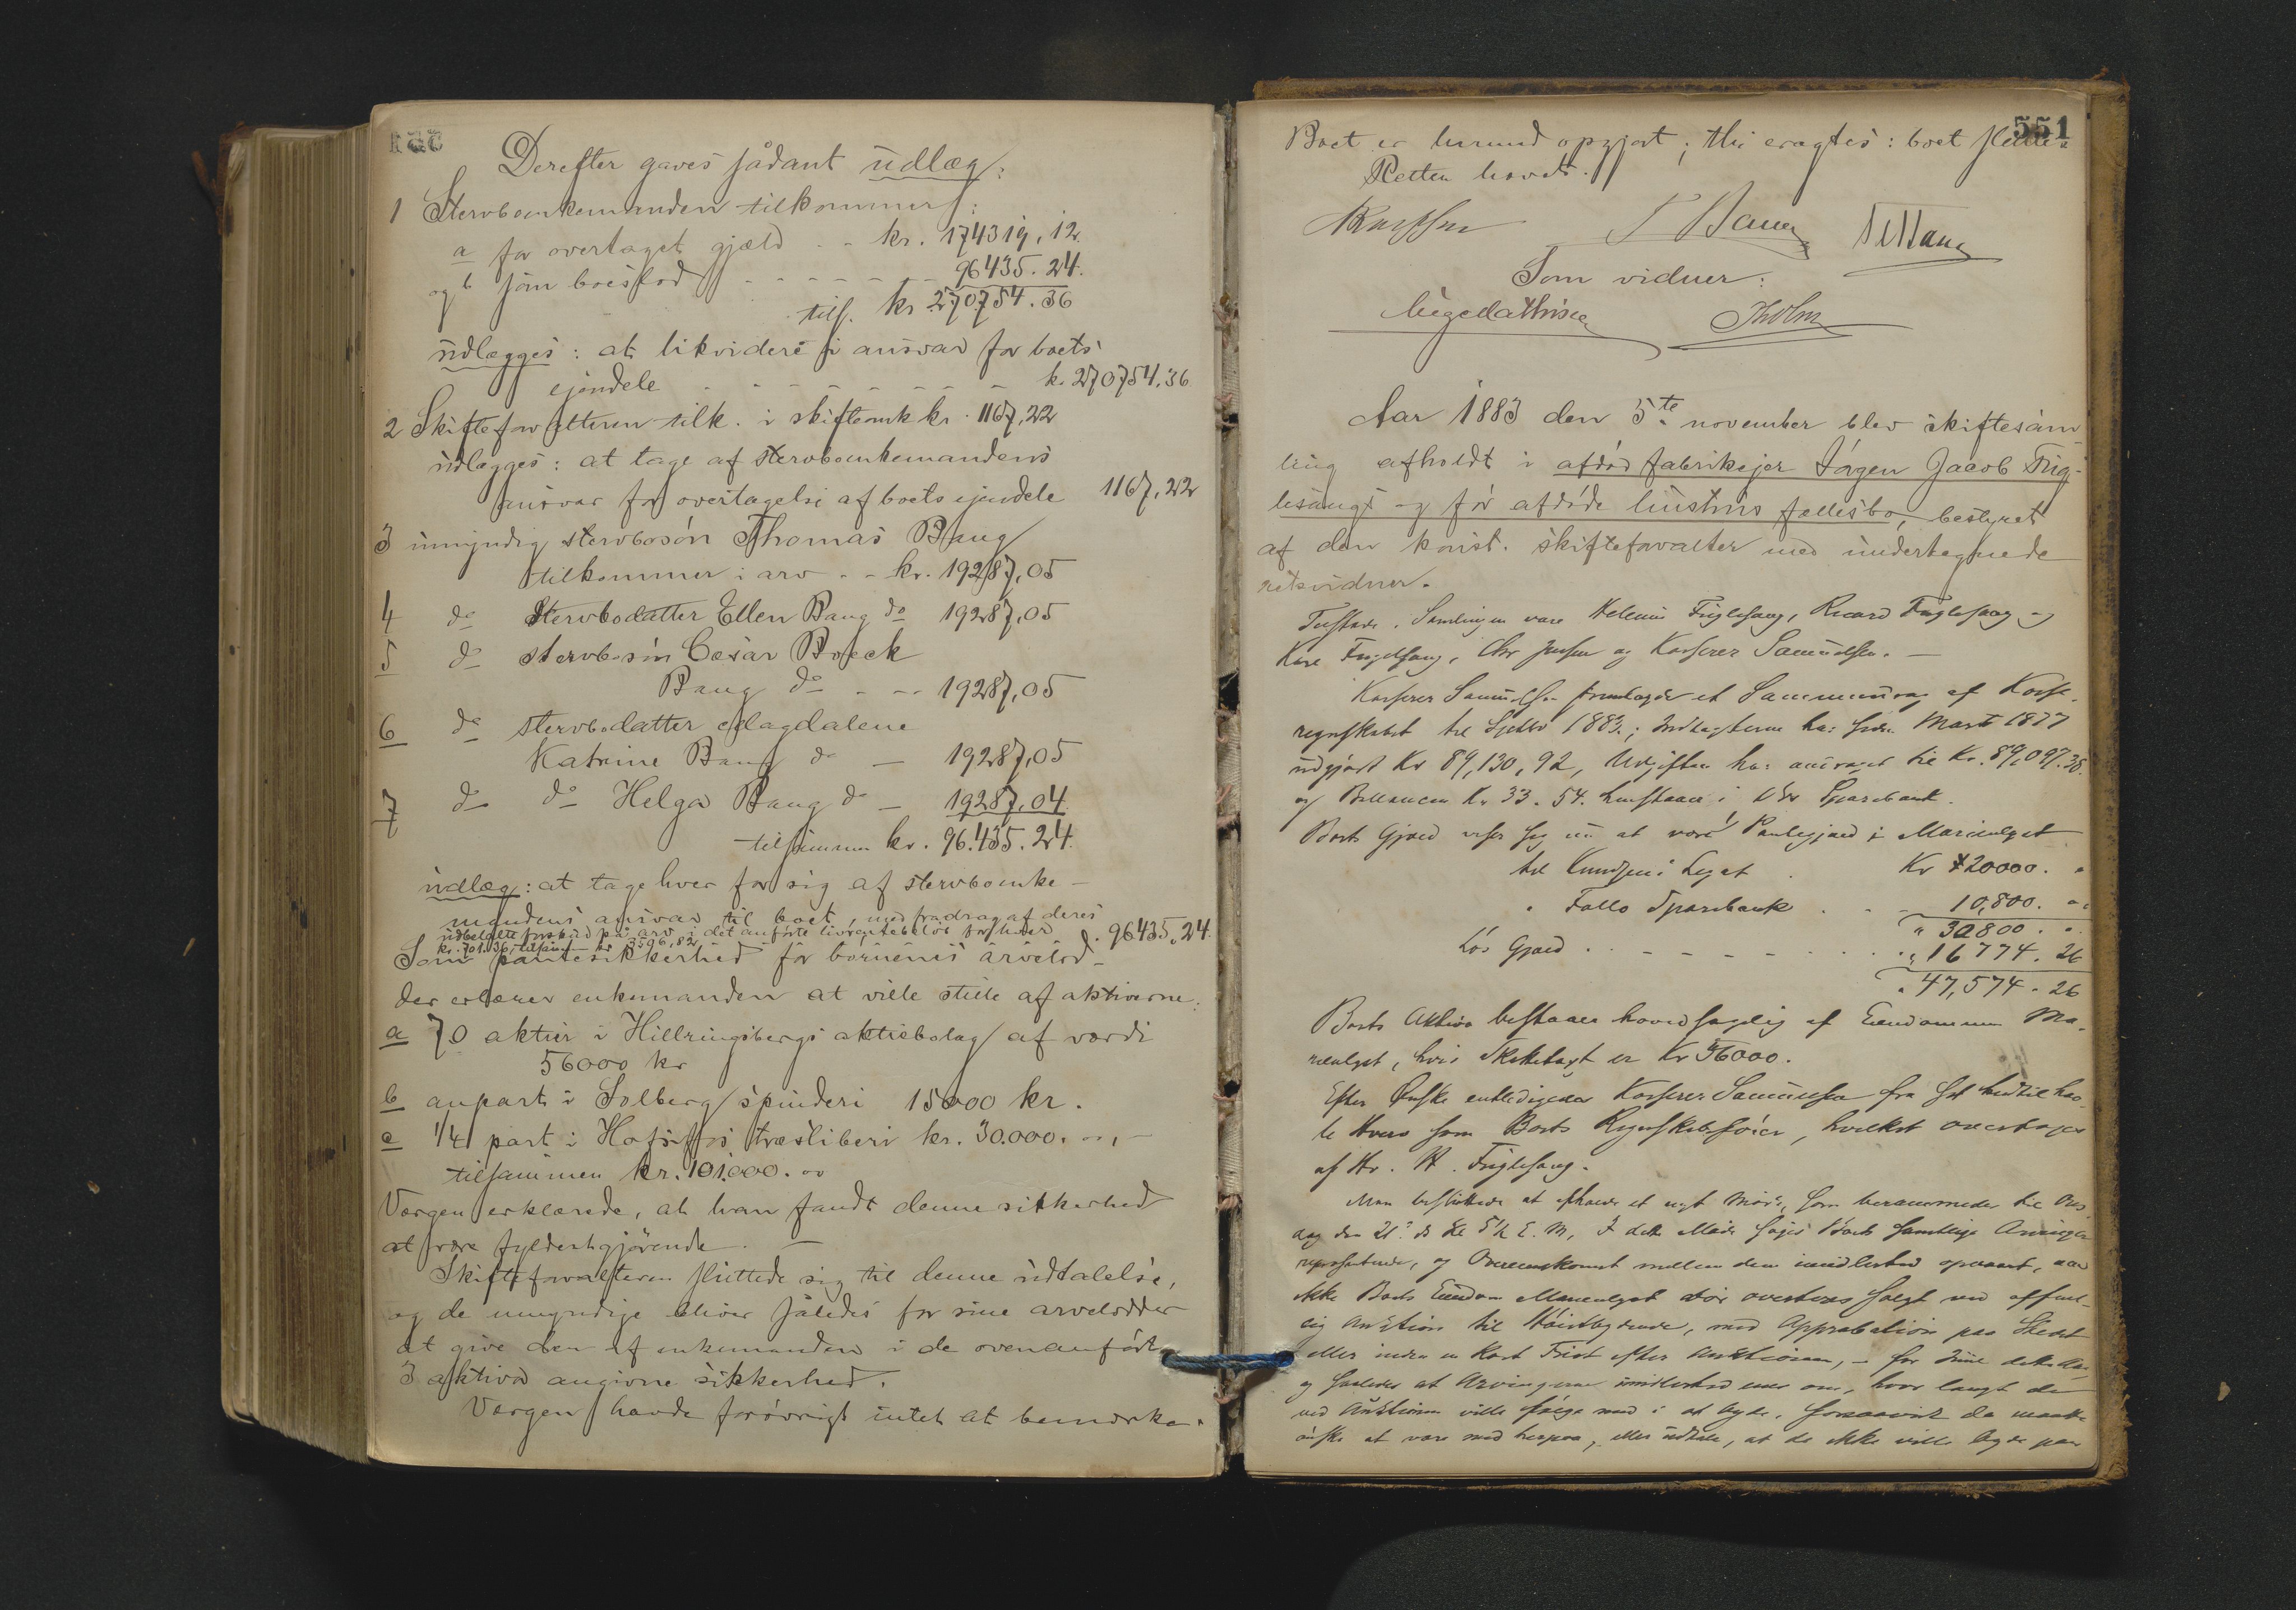 Derefter gaves sådant udlæg:
1 Stervboenkemanden tilkommer:
a for overtaget gjæld - - kr. 174319,12
og b søm boeslod - - - - - - 96435.24
tils. kr 270754.36
udlægges: at likvidere i ansvar for boets
ejendele - - - - - - - - k. 270754,36
2 Skifteforvalteren tilk. i skifteomk kr. 1167,22
udlægges: at tage af stervboenkemandens
ansvar for overtagelse af boets ejendele 1167,22
3 umyndig stervbosøn Thomas Bang
tilkommer i arv - - kr. 19287,05
4 do stervbodatter Ellen Bang do 19287,05
5 do stervbosøn Cæsar Boeck
Bang do - - - 19287,05
6 do stervbodatter Magdalene
Katrine Bang do — 19287,05
7 do do Helga Bang do — 19287,04
tilsammen kr. 96.435.24
udlæg: at tage hver for sig af stervboenke-
mandens ansvar til boet, med fradrag af deres
udbetalte forskud på arv i det anførte 96435.24
kr. 701.36, tilsam kr 3596,82
Som pantesikkerhed for børnenes arvelod-
der erklærer enkemanden at ville stille af aktiverne:
a 70 aktier i Hillringsbergs aktiebolag af værdi
56000 kr
b anpart i Solberg spinderi 15000 kr.
c 1/4 part i Hofsfos træsliberi kr. 30.000. -
tilsammen kr. 101.000. 00
Værgen erklærede, at han fandt denne sikkerhed
at være fyldestgjørende. —
Skifteforvalteren sluttede sig til denne udtalelse,
og de umyndige bliver således for sine arvelodder
at give den af enkemanden i de ovenanførte
3 aktiva angivne sikkerhed.
Værgen havde forøvrigt intet at bemærke.
551
Boet er herved opgjort; thi eragtes: boet sluttes
Retten hævet.
Som vidner:
Holm
Aar 1883 den 5te november blev skiftesam-
ling afholdt i afdød fabrikejer Jørgen Jacob Fug-
lesangs og før afdøde hustrus fællesbo, bestyret
af den konst. skifteforvalter med undertegnede
retsvidner.
Tilstede i Samlingen vare Helenus Fuglesang, Ricard Fuglesang og
Kare Fuglesang, Chr Jensen og Kasserer Samuelsen. —
Kasserer Samuelsen fremlagde et Sammendrag af Kasse-
regnskabet til 1883; Indtægterne har siden Marts 1877
udgjort Kr 89,130,92, Udgiften har andraget til Kr. 89,097.38.
og Ballancen Kr 33.54. henstaar i Sparebank.
Boets Gjæld viser sig nu at være Pantegjæld i Marienlyst
til Knudsens Legat Kr 20000. "
" Follo Sparebank . . - 10,800. "
" 30800. "
Løs Gjæld . . - - - - - " 16774.26
" 47,574.26
Boets Aktiva bestaar hovedsagelig af Eiendommen Ma-
rienlyst, hvis Skattetaxt er Kr 56000.
Efter Ønske entledigedes Kasserer Samuelsen fra sit hidtil hav-
te Hverv som Boets Regnskabsfører, hvilket overtages
af Hr. H. Fuglesang.
Man besluttede at afholde et nyt Møde, som berammedes til Ons-
dag den 21de ds Kl 5½ E.M, I dette Møde søges Boets samtlige Arvinger
repræsenterede, og Overenskomst mellem dem imidlertid opnaaet, om
ikke Boets Eiendom Marienlyst bør overtages solgt ved offent-
lig Auktion til Høistbydende, med Approbation paa Stedet
eller inden en kort Frist efter Auktionen, -
og saaledes at Arvingerne imidlertid enes om, hvor langt de
ved Auktionen ville følge med i at byde, forsaavidt de maatte
ønske at være med herpaa, eller udtale, at de ikke ville byde paa